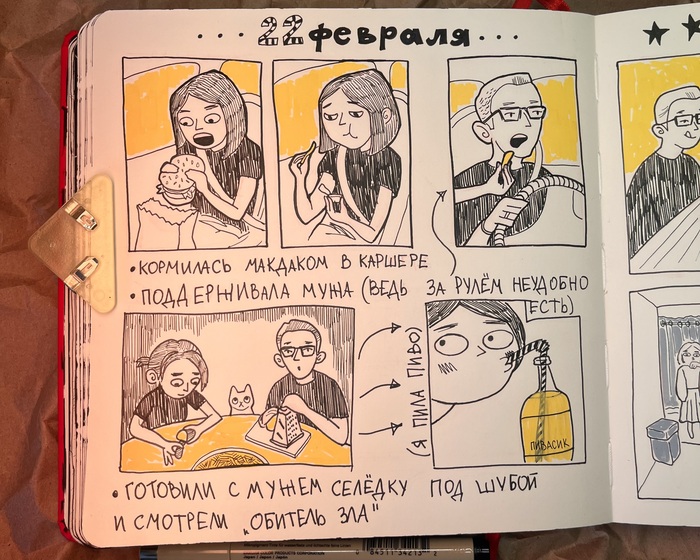 ... 22 февраля ...
• КОРМИЛАСЬ МАКДАКОМ В КАРШЕРЕ
• ПОДДЕРЖИВАЛА МУЖА (ВЕДЬ ЗА РУЛЁМ НЕУДОБНО
ЕСТЬ)
(Я ПИЛА ПИВО)
ПИВАСИК
• ГОТОВИЛИ С МУЖЕМ СЕЛЁДКУ ПОД ШУБОЙ
И СМОТРЕЛИ „ОБИТЕЛЬ ЗЛА"